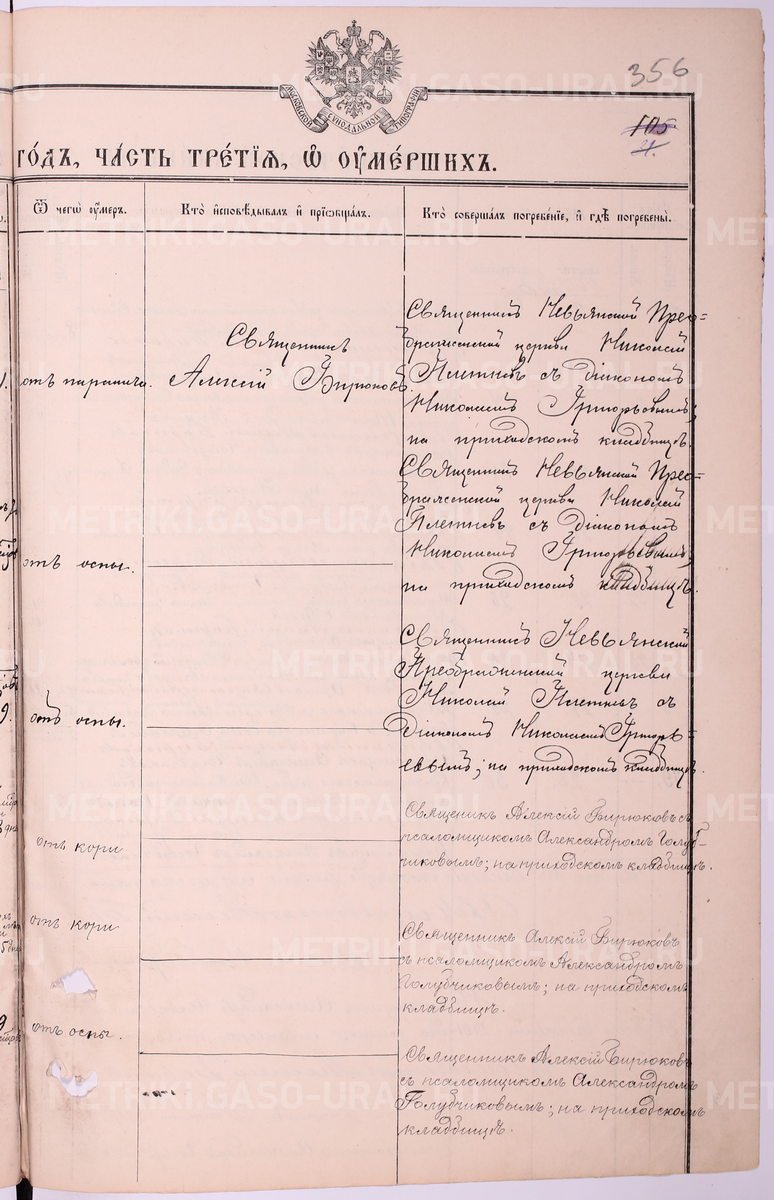 356
105
МОСКОВСКОЙ СѴНОДАЛЬНОЙ ТИПОГРАФІИ
ГО́ДЪ, ЧА́СТЬ ТРЕ́ТІѦ, Ѡ҆ ОУ҆МЕ́РШИХЪ.
Ѿ чегѡ̀ ᲂу҆́меръ.
Кто̀ и҆сповѣ́дывалъ и҆ прїѡбща́лъ.
Кто̀ соверша́лъ погребе́нїе, и҆ гдѣ̀ погребены̀.
отъ паралича.
Священникъ
Алексій Бирюковъ
Священникъ Невьянской Прео=
браженской церкви Николай
Плетневъ съ діакономъ
Николаемъ Григорьевымъ;
на приходскомъ кладбищѣ.
отъ оспы.
Священникъ Невьянской Прео=
браженской церкви Николай
Плетневъ съ діакономъ
Николаемъ Григорьевымъ;
на приходскомъ кладбищѣ.
отъ оспы.
Священникъ Невьянской
Преображенской церкви
Николай Плетневъ съ
діакономъ Николаемъ Григорь=
евымъ; на приходскомъ кладбищѣ.
отъ кори
Священникъ Алексій Бирюковъ съ
псаломщикомъ Александромъ Голуб-
чиковымъ; на приходскомъ кладбищѣ.
отъ кори
Священникъ Алексій Бирюковъ
съ псаломщикомъ Александромъ
Голубчиковымъ; на приходскомъ
кладбищѣ.
отъ оспы.
Священникъ Алексій Бирюковъ
съ псаломщикомъ Александромъ
Голубчиковымъ; на приходскомъ
кладбищѣ.
METRIKI.GASO-URAL.RU